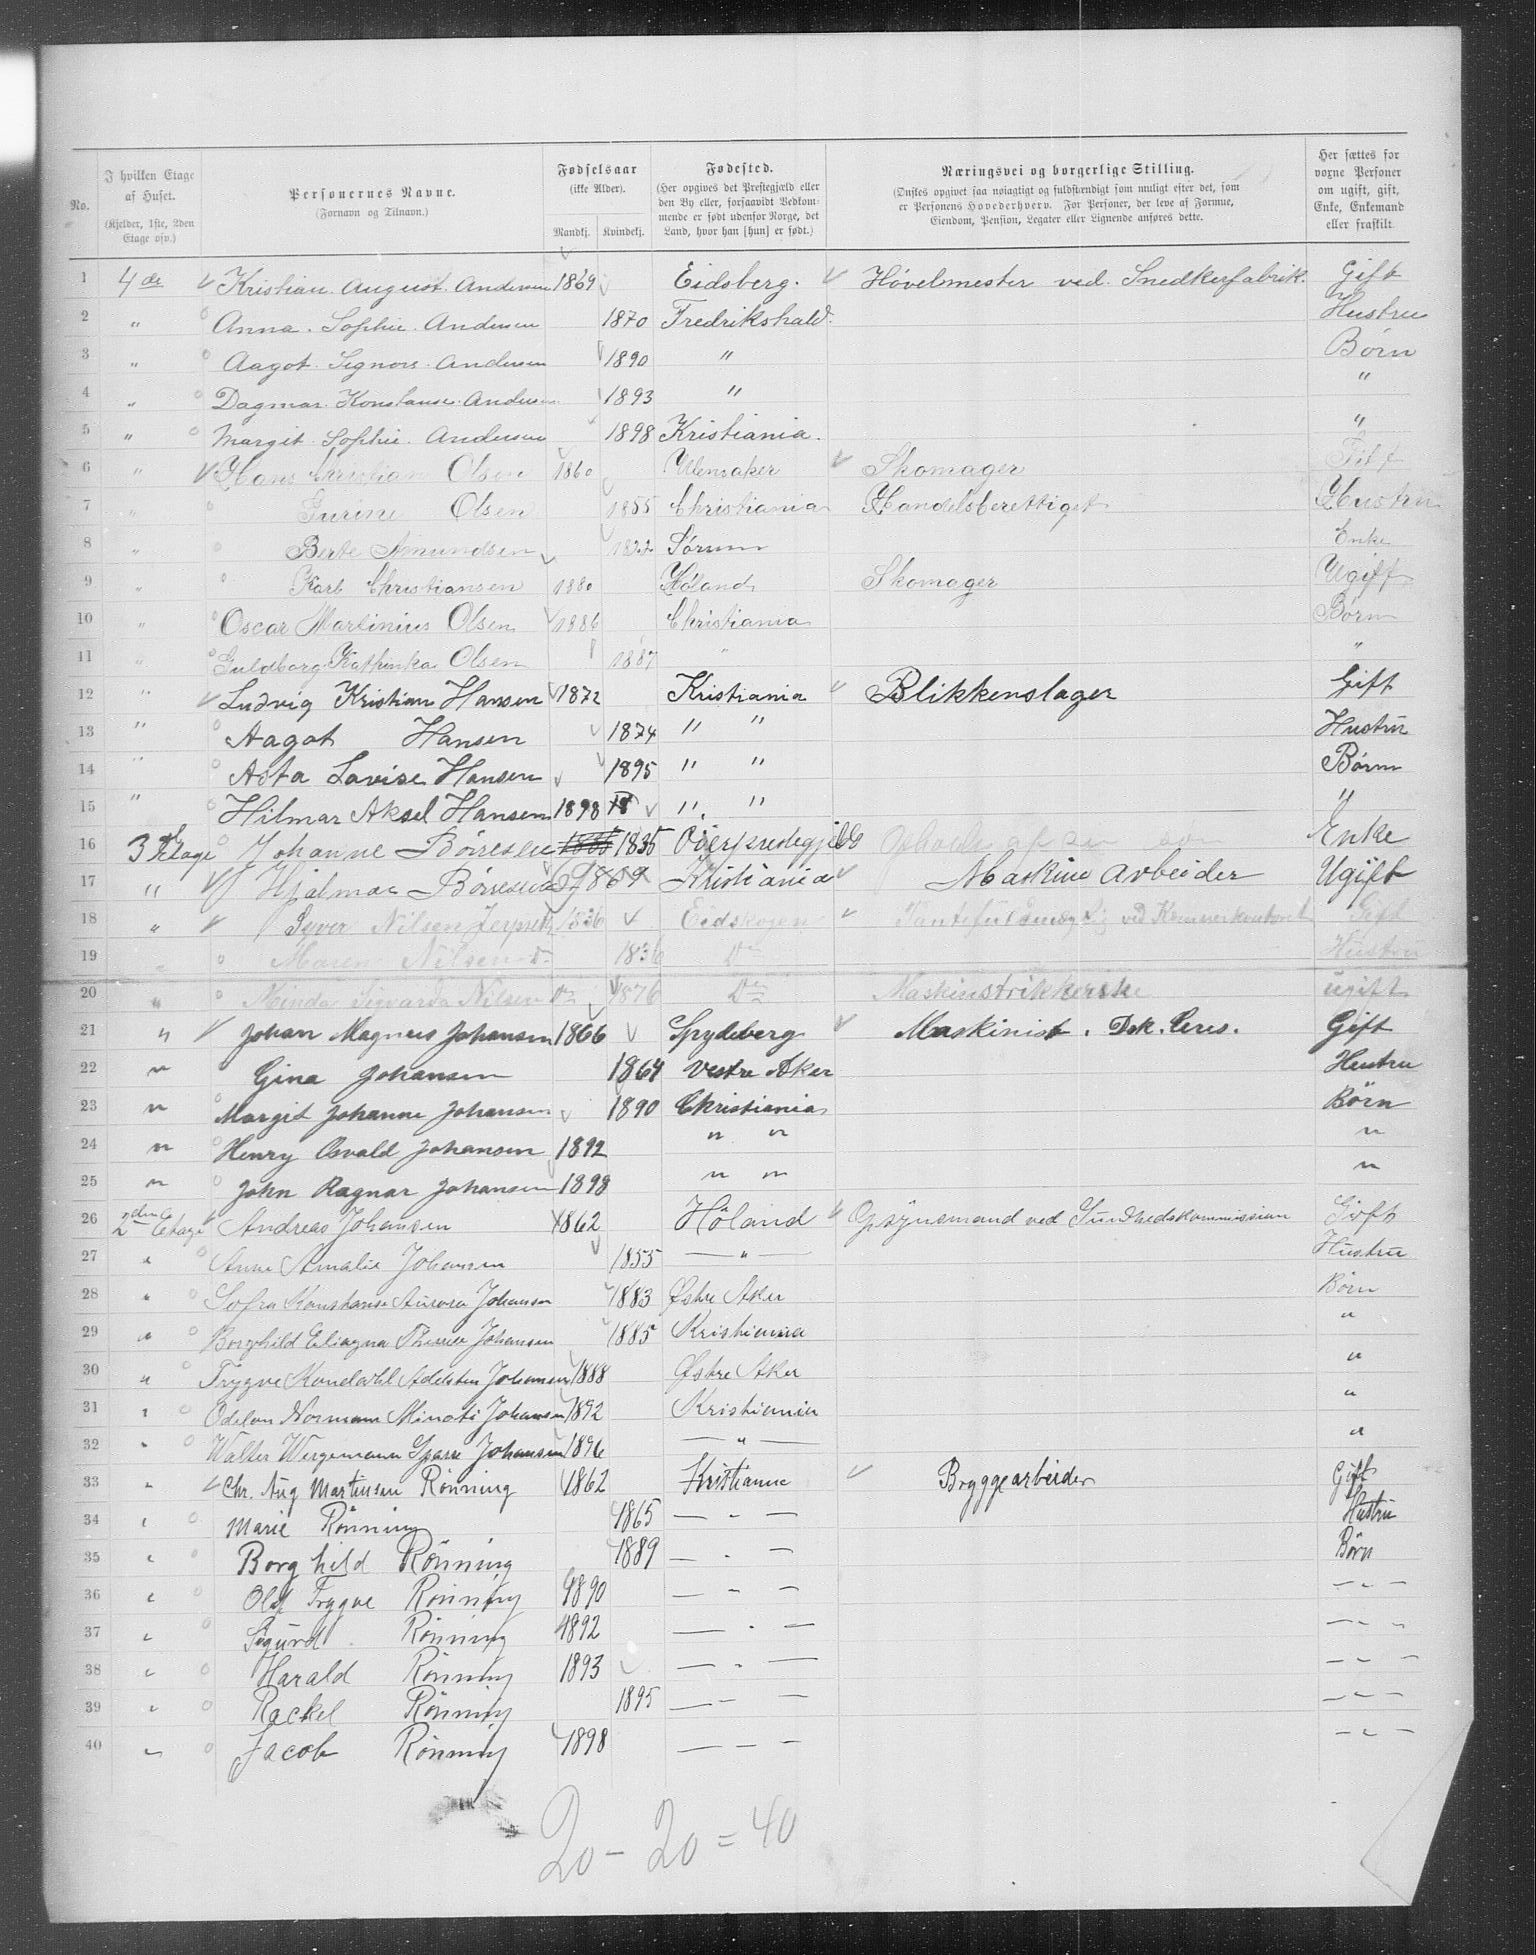 No.
I hvilken Etage af Huset. (Kjelder, 1ste, 2den Etage osv.)
Personernes Navne. (Fornavn og Tilnavn.)
Fødselsaar (ikke Alder). Mandkj. Kvindekj.
Fødested. (Her opgives det Prestegjæld eller den By eller, forsaavidt Vedkommende er født udenfor Norge, det Land, hvor han [hun] er født.)
Næringsvei og borgerlige Stilling. (Ønstes opgivet saa nøiagtigt og fuldstændigt som muligt efter det, som er Personens Hovederhverv. For Personer, der leve af Formue, Eiendom, Pension, Legater eller Lignende anføres dette.
Her sættes for voxne Personer om ugift, gift, Enke, Enkemand eller fraskilt.
1 4de Kristian August Andersen 1869 Eidsberg. Høvelmester ved Snedkerfabrik. Gift
2 " Anna Sophie Andersen 1870 Fredrikshald. Hustru
3 " Aagot Signora Andersen 1890 " Børn
4 " Dagmar Konstanse Andersen 1893 " "
5 " Margit Sophie Andersen 1898 Kristiania. "
6 " Hans Christian Olsen 1860 Ulensaker Skomager Gift
7 " Gurine Olsen 1855 Christiania Handelsberettiget Hustru
8 " Berte Amundsen 1822 Sørum Enke
9 " Karl Christiansen 1880 Høland Skomager Ugift
10 " Oscar Martinius Olsen 1886 Christiania Børn
11 " Guldborg Kathinka Olsen 1887 " "
12 " Ludvig Kristian Hansen 1872 Kristiania Blikkenslager Gift
13 " Aagot Hansen 1874 " " Hustru
14 " Asta Lovise Hansen 1895 " " Børn
15 " Hilmar Aksel Hansen 1898 " " "
16 3die Etage Johanne Börresen 1835 Enke
17 " Hjalmar Börresen 1869 Kristiania Maskin Arbeider Ugift
18 " Syver Nilsen 1836 Eidskogen ved Gift
19 " Maren Nilsen Do 1836 Do Hustru
20 " Minda Sigvarda Nilsen Do 1876 Do Maskinstrikkerske ugift
21 " Johan Magnus Johansen 1866 Spydeberg Maskinist. Dsk. Ceres. Gift
22 " Gina Johansen 1864 Vestre Aker Hustru
23 " Margit Johanne Johansen 1890 Christiania Børn
24 " Henry Osvald Johansen 1892 " " "
25 " John Ragnar Johansen 1898 " " "
26 2den Etage Andreas Johansen 1862 Höland Opsynsmand ved Sundhedskommissian Gift
27 " Anne Amalie Johansen 1855 — " — Hustru
28 " Sofra Konstanse Aurora Johansen 1883 Østre Aker Børn
29 " Borghild Johansen 1885 Kristiania "
30 " Trygve Johansen 1888 Østre Aker "
31 " Odelon Normann Minoti Johansen 1892 Kristiania "
32 " Walter Wergemann Sparre Johansen 1896 — " — "
33 " Chr. Aug Martinsen Rönning 1862 Kristiania Bryggearbeider Gift
34 " Marie Rönning 1865 — " — Hustru
35 " Borghild Rönning 1889 — " — Børn
36 " Olaf Trygve Rönning 1890 — " — — " —
37 " Sigurd Rönning 1892 — " — — " —
38 " Harald Rönning 1893 — " — — " —
39 " Rackel Rönning 1895 — " — — " —
40 " Jacob Rönning 1898 — — — — " —
20 - 20 = 40